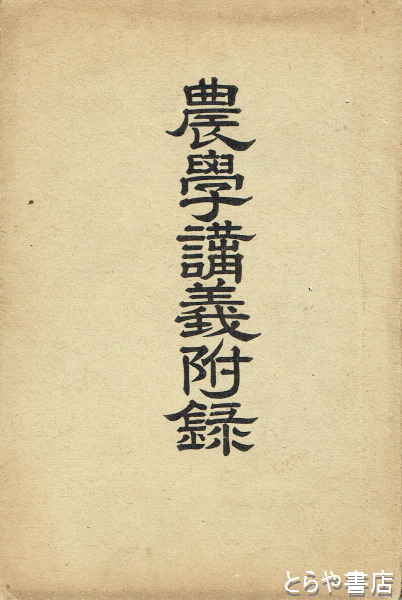 農學講義附錄
とらや書店